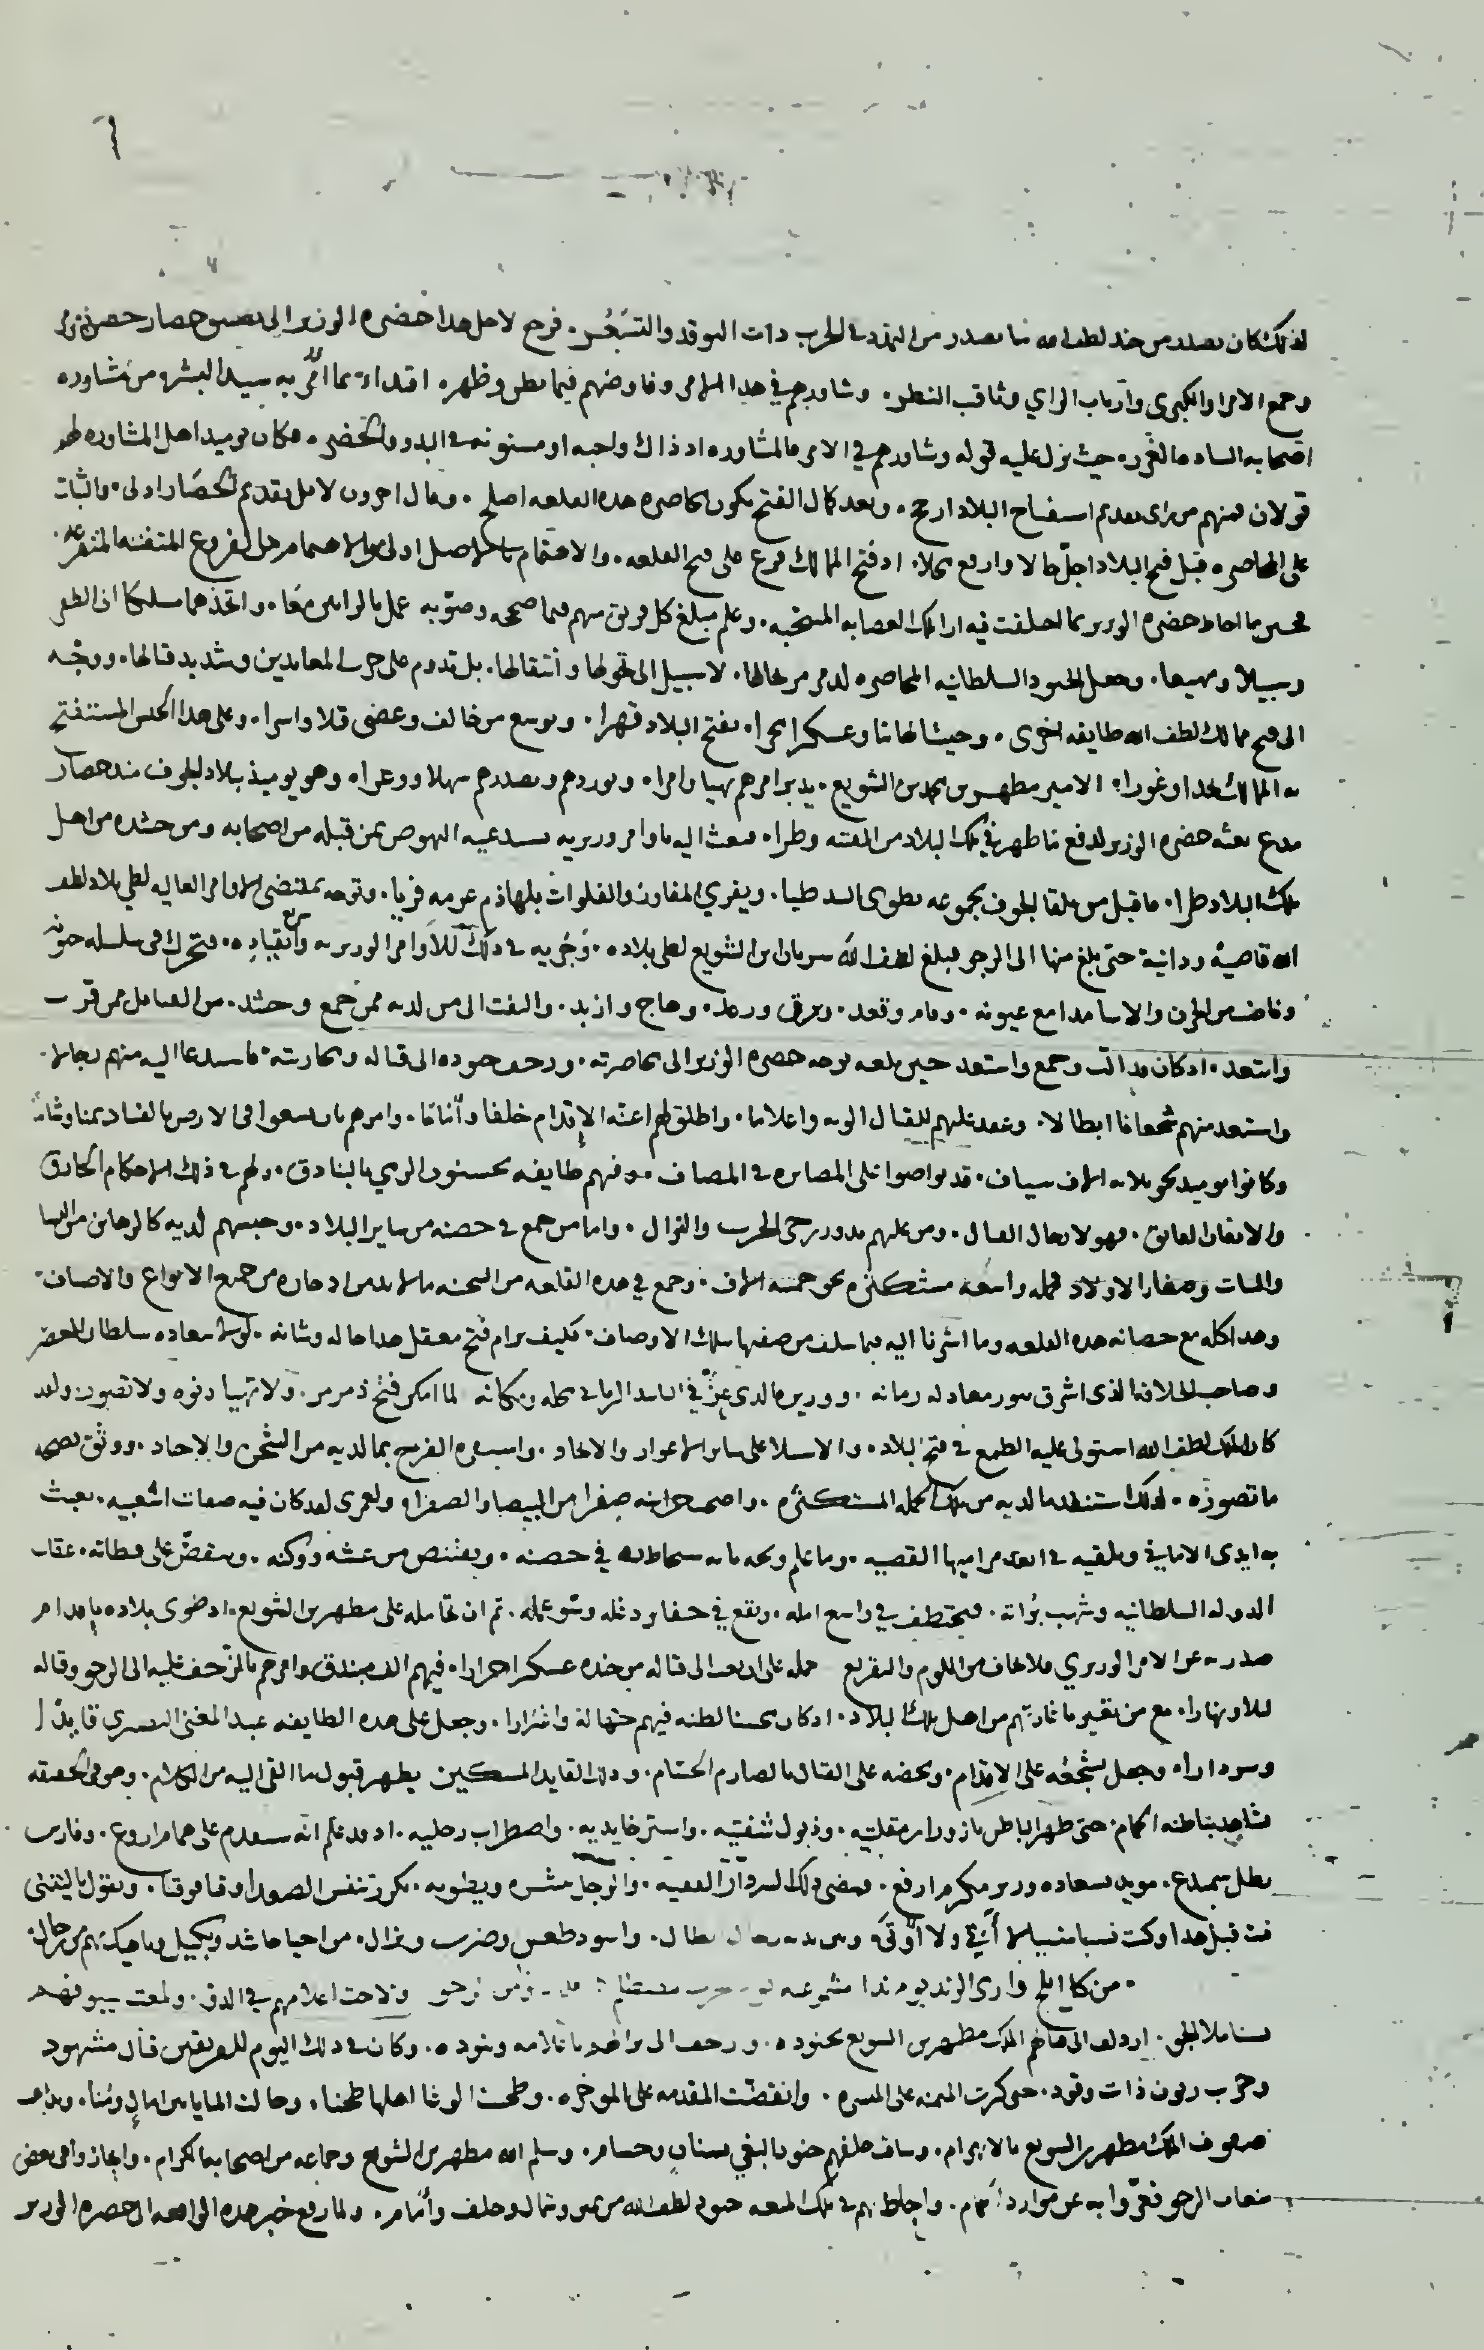 لذلك كان يصدر من جند لطف الله ما يصدر من التمرد في الحرب ذات التوقد والتسعّر. فرجح لاجل هذا حضرة الوزير الى تضييق حصار حصن ذمرمر
وجمع الامرا والكبرى وارباب الراي وثاقب النظر. وشاورهم في هذا الامر وفاوضهم فيما بطن وظهر. اقتداء بما امر به سيد البشر من مشاورة
اصحابه السادة الغرر. حيث نزل عليه قوله وشاورهم في الامر فالمشاورة اذ ذاك واجبة او مسنونة في البدو والحضر. فكان يوميد لاهل المشاورة
قولان فمنهم من راى تقديم استفتاح البلاد ارجح. وبعد كمال الفتح يكون محاصرة هذه القلعة اصلح. وقال اخرون لا بل تقديم الحصار اولى. والثبات
على المحاصرة قبل فتح البلاد اجلّ حالا وارفع محلا. اذ فتح الممالك فرع على فتح القلعة. والاهتمام بالاصل اولى من الاهتمام بالفروع
فحين ما احاط حضرة الوزير بما اختلفت فيه ارا تلك العصابة المنتخبة. وعلم مبلغ كل فريق منهم فيما صححه وصوبه عمل بالرايين معا. واتخذهما مسلكا الى الظفر
وسبيلا ومهيعا. وجعل الجنود السلطانية المحاصرة لذمرمر بحالها. لا سبيل الى تحولها وانتقالها. بل تدوم على حرب المعاندين وشديد قتالها. ووجّه
الى فتح ممالك لطف الله طايفة اخرى. وجيشا وعسكرا مجرا. يفتح البلاد قهرا. ويوسع من خالف وعصى قتلا واسرا. وعلى هذا الجيش المستفتح
من الممالك نجدا وغورا. الامير مطهر بن محمد بن الشويع. يدبر امرهم نهيا وامرا. ويوردهم ويصدرهم سهلا ووعرا. وهو يوميذ ببلاد الجوف منذ حصار
مدع بعثه حضرة الوزير لدفع ما ظهر في تلك البلاد من الفتنة وطرا. فبعث اليه باوامر وزيرية يستدعيه النهوض بمن قبله من اصحابه ومن حشده من اهل
تلك البلاد طرا. فاقبل من تلقا الجوف بجموعه يطوي البيد طيا. ويفري المفاوز والفلوات بلهاذم عزمه فريا. وتوجه بمقتضى الاوامر العالية لطي بلاد لطف
الله قاصية ودانية حتى بلغ منها الى الرجو فبلغ لطف الله سريان ابن الشويع لطي بلاده. وجريه في ذلك للاوامر الوزيرية وانقياده. فتحرك في سلسلة
وفاض من الحزن والاسا مدامع عيونه. وقام وقعد. وبرق ورعد. وهاج وازبد. والتفت الى من لديه ممن جمع وحشد. من القبايل ممن قرب
وابتعد. اذ كان قد الّب وجمع واستعد حين بلغه توجه حضرة الوزير الى محاصرته. وزحف جنوده الى قتاله ومحاربته. فاستدعا اليه منهم رجالا.
واستعد منهم شجعانا ابطالا. وعقد عليهم للقتال الوية واعلاما. واطلق لهم اعنة الاقدام خلفا واماما. وامرهم بان يسعوا في الارض بالفساد يمنا وشاما
وكانوا يوميد نحو ثلاثة الاف سياف. قد تواصوا على المصابرة في المصاف. وفيهم طايفة يحسنون الرمي بالبنادق. ولهم في ذلك الاحكام الحاذق
والاتقان الفايق. فهولا رجال القتال. ومن عليهم تدور رحى الحرب والنزال. واما من جمع في حصنه من ساير البلاد. وحبسهم لديه كالرهاين من النسا
والبنات وصغار الاولاد فجملة واسعة مستكثرة نحو خمسة الاف. وجمع في هذه القلعة من الشحنة ما لا بد من ادخاره من جميع الانواع والاصناف.
وهذا كله مع حصانة هذه القلعة وما اشرنا اليه فيما سلف من صفتها بتلك الاوصاف. فكيف يرام فتح معقل هذا حاله وشانه. لولا سعادة سلطان العصر
وصاحب الخلافة الذي اشرق بنور معدلته زمانه. ووزيره الذي عزّ في ابناء الزمان محله ومكانه لما امكن فتح ذمرمر. ولا تهيا دنوه ولا تصور. ولقد
كان الملك لطف الله استولى عليه الطمع في فتح البلاد. والاستلا على ساير الاغوار والانجاد. واستفزه الفرح بما لديه من الشحن والاجناد. ووثق بصحة
ما تصوره. لذلك استنفد ما لديه من تلك الجملة المستكثرة. واصبحت خزاينه صفرا من البيضا والصفرا ولعمري لقد كان فيه صفات اشعبية. تعبث
به ايدي الاماني وتلقيه في ابعد مراميها القصية. وما علم ويحه بانه سيحاط به في حصنه. ويقتنص من عشه ووكنه. وينقضّ على قطاته. عقاب
الدولة السلطانية وشهب بزاته. فيختطف في واسع امله. ويقع في حفاير دغله وسو عمله. ثم ان تحامله على مطهر بن الشويع. اذ طوى بلاده باقدام
صدر به عن الامر الوزيري فلا يخاف من اللوم والتقريع حمله على ان بعث الى قتاله من جنده عسكرا جرارا. فيهم الف بندق وامرهم بالزحف عليه الى الرجو وقتاله
ليلا ونهارا. مع من تغير ما عادتهم من اهل تلك البلاد. اذ كان يحسنا لظنه فيهم جهالة واغترارا. وجعل على هذه الطايفة عبد المغني النصري قايدا
وسردارا. وجعل يشجعه على الاقدام. ويحضه على القتال بالصارم الحسام. وذلك القايد المسكين يظهر قبول ما القى اليه من الكلام. وهو في الحقيقة
مشاهد بباطنه الحمام. حتى ظهر الباطن بازورار مقلتيه. وذبول شفتيه. واسترخا يديه. واضطراب رجليه. اذ قد علم انه سيقدم على همام اروع. وفارس
بطل سميدع. مويد بسعادة وزير مكرم ارفع. فمضى ذلك السردار الفقيه. والوجل ينشره ويطويه. يكرر تنفس الصعدا وقتا فوقتا. ويقول ياليتني
مت قبل هذا وكنت نسيا منسيا لا أُبقي ولا أوقى. ومن بين يديه رجال ابطال. واسود طعن وضرب ونزال. من احيا حاشد وبكيل وناهيك بهم من رجال.
من كل ابلج واري الزند يوم ندا مشمر عنه يوم الحرب ولاحت اعلامهم في الافق. ولمعت سيوفهم
ازدلف الى لقاهم الملك مطهر بن الشويع بجنوده. وزحف الى باعلامه وبنوده. وكان في ذلك اليوم للفريقين قتال مشهود
وحرب زبون ذات وقود. حتى كرت الميمنة على الميسرة. وانقضت المقدمة على الموخرة. وطحنت الوغا اهلها طحنا. وحالت المنايا
صفوف الملك مطهر بن الشويع بالانهزام. وساق خلفهم جنود البغي بسنان وحسام. وسلم الله مطهر بن الشويع وجماعة من اصحابه الكرام. وانحاز وا في بعض
شعاب الرجو فعزّوا به عن موارد الحمام. واحاط بهم في تلك البقعة جنود لطف الله من يمين وشمال وخلف وأمام. ولما رفع خبر هذه الواقعة الى حضرة الوزير